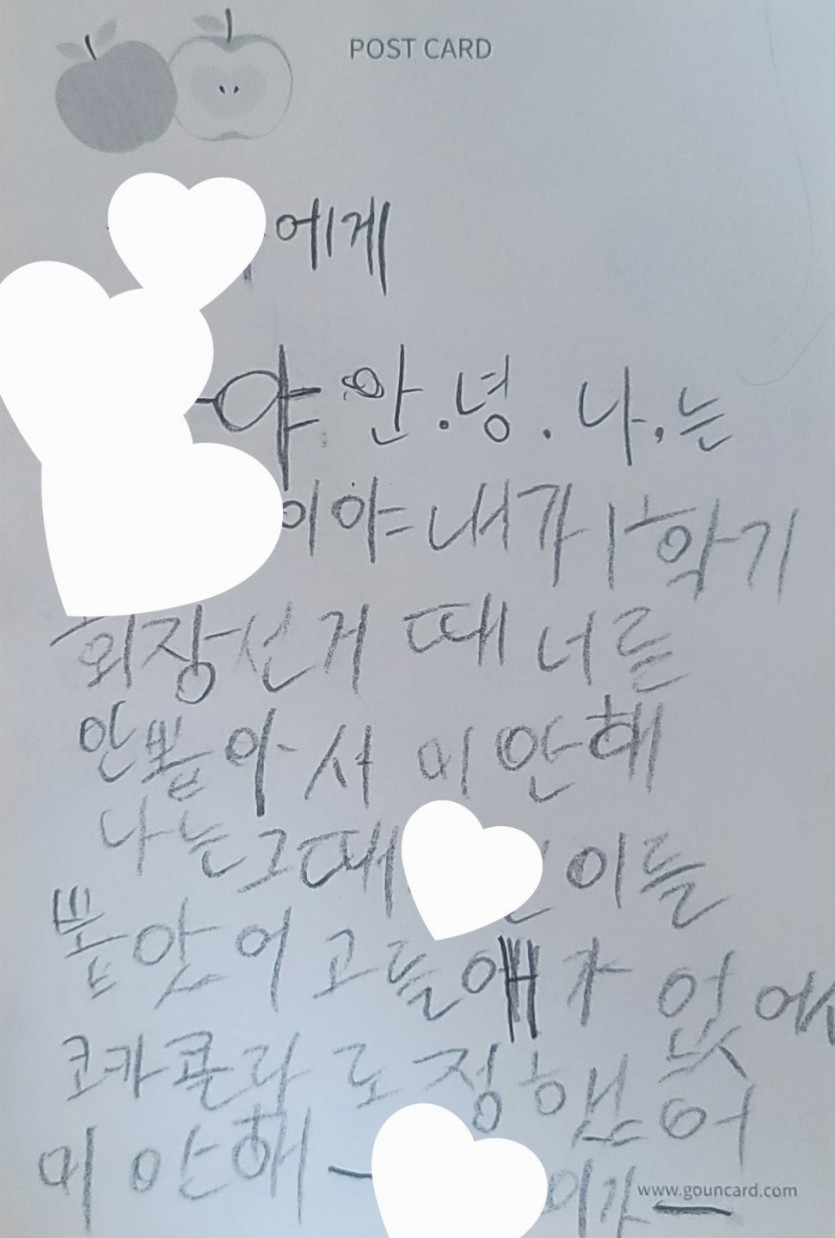 POST CARD
에게
야 안.녕.나,는
이야 내가 1학기
회장선거 때 너를
안뽑아서 미안해
나는그때 이를
뽑았어 고를 얘가 없어
코카콜라로 정했어
미안해 - 이가 -
www.gouncard.com